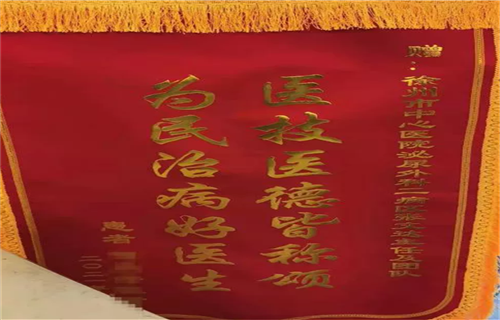 赠:徐州市中心医院泌尿外科一病区张文达主任及团队
医技医德皆称颂
为民治病好医生
患者
二〇二